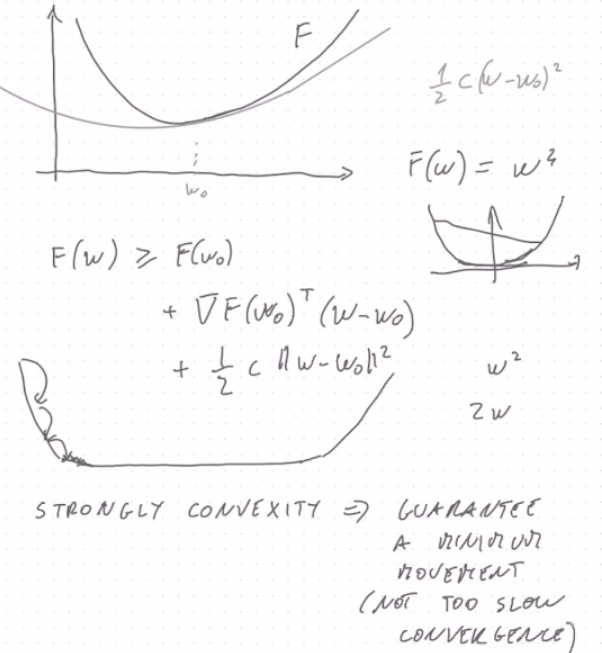 F
½ c(w-w₀)²
w₀
F(w) = w⁴
F(w) ≥ F(w₀)
+ ∇F(w₀)ᵀ(w-w₀)
+ ½ c ‖w-w₀‖²
w²
2w
STRONGLY CONVEXITY ⇒ GUARANTEE
A MINIMUM
MOVEMENT
(NOT TOO SLOW
CONVERGENCE)